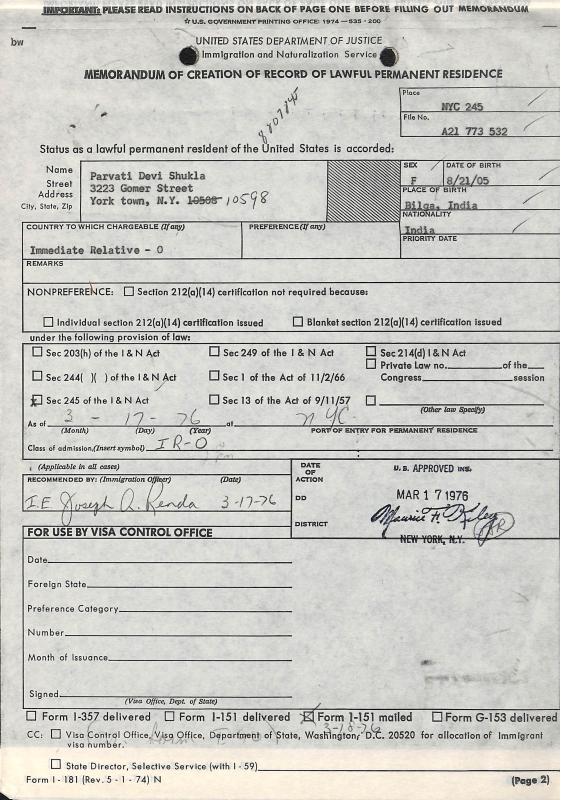 IMPORTANT: PLEASE READ INSTRUCTIONS ON BACK OF PAGE ONE BEFORE FILLING OUT MEMORANDUM
☆ U.S. GOVERNMENT PRINTING OFFICE: 1974—535-200
bw
UNITED STATES DEPARTMENT OF JUSTICE
Immigration and Naturalization Service
MEMORANDUM OF CREATION OF RECORD OF LAWFUL PERMANENT RESIDENCE
Place
NYC 245
File No.
A21 773 532
Status as a lawful permanent resident of the United States is accorded:
Name
Street
Address
City, State, Zip
Parvati Devi Shukla
3223 Gomer Street
York town, N.Y. 10598
SEX
F
DATE OF BIRTH
8/21/05
PLACE OF BIRTH
Bilga, India
NATIONALITY
India
PRIORITY DATE
COUNTRY TO WHICH CHARGEABLE (If any)
PREFERENCE (If any)
Immediate Relative - 0
REMARKS
NONPREFERENCE: ☐ Section 212(a)(14) certification not required because:
☐ Individual section 212(a)(14) certification issued ☐ Blanket section 212(a)(14) certification issued
under the following provision of law:
☐ Sec 203(h) of the I & N Act ☐ Sec 249 of the I & N Act ☐ Sec 214(d) I & N Act
☐ Private Law no. of the
☐ Sec 244( )( ) of the I & N Act ☐ Sec 1 of the Act of 11/2/66 Congress session
☒ Sec 245 of the I & N Act ☐ Sec 13 of the Act of 9/11/57 ☐
(Other law Specify)
As of 3 - 17 - 76 at N.Y.C.
(Month) (Day) (Year) PORT OF ENTRY FOR PERMANENT RESIDENCE
Class of admission, (Insert symbol) IR-0
(Applicable in all cases)
RECOMMENDED BY: (Immigration Officer) (Date)
I.E Joseph A. Renda 3-17-76
DATE OF ACTION
DD
DISTRICT
U.S. APPROVED INS.
MAR 17 1976
Maurice F. Kiley
NEW YORK, N.Y.
FOR USE BY VISA CONTROL OFFICE
Date
Foreign State
Preference Category
Number
Month of Issuance
Signed
(Visa Office, Dept. of State)
☐ Form I-357 delivered ☐ Form I-151 delivered ☒ Form I-151 mailed ☐ Form G-153 delivered
3-18-76
CC: ☐ Visa Control Office, Visa Office, Department of State, Washington, D.C. 20520 for allocation of Immigrant
visa number.
☐ State Director, Selective Service (with I-59)
Form I-181 (Rev. 5-1-74) N
(Page 2)